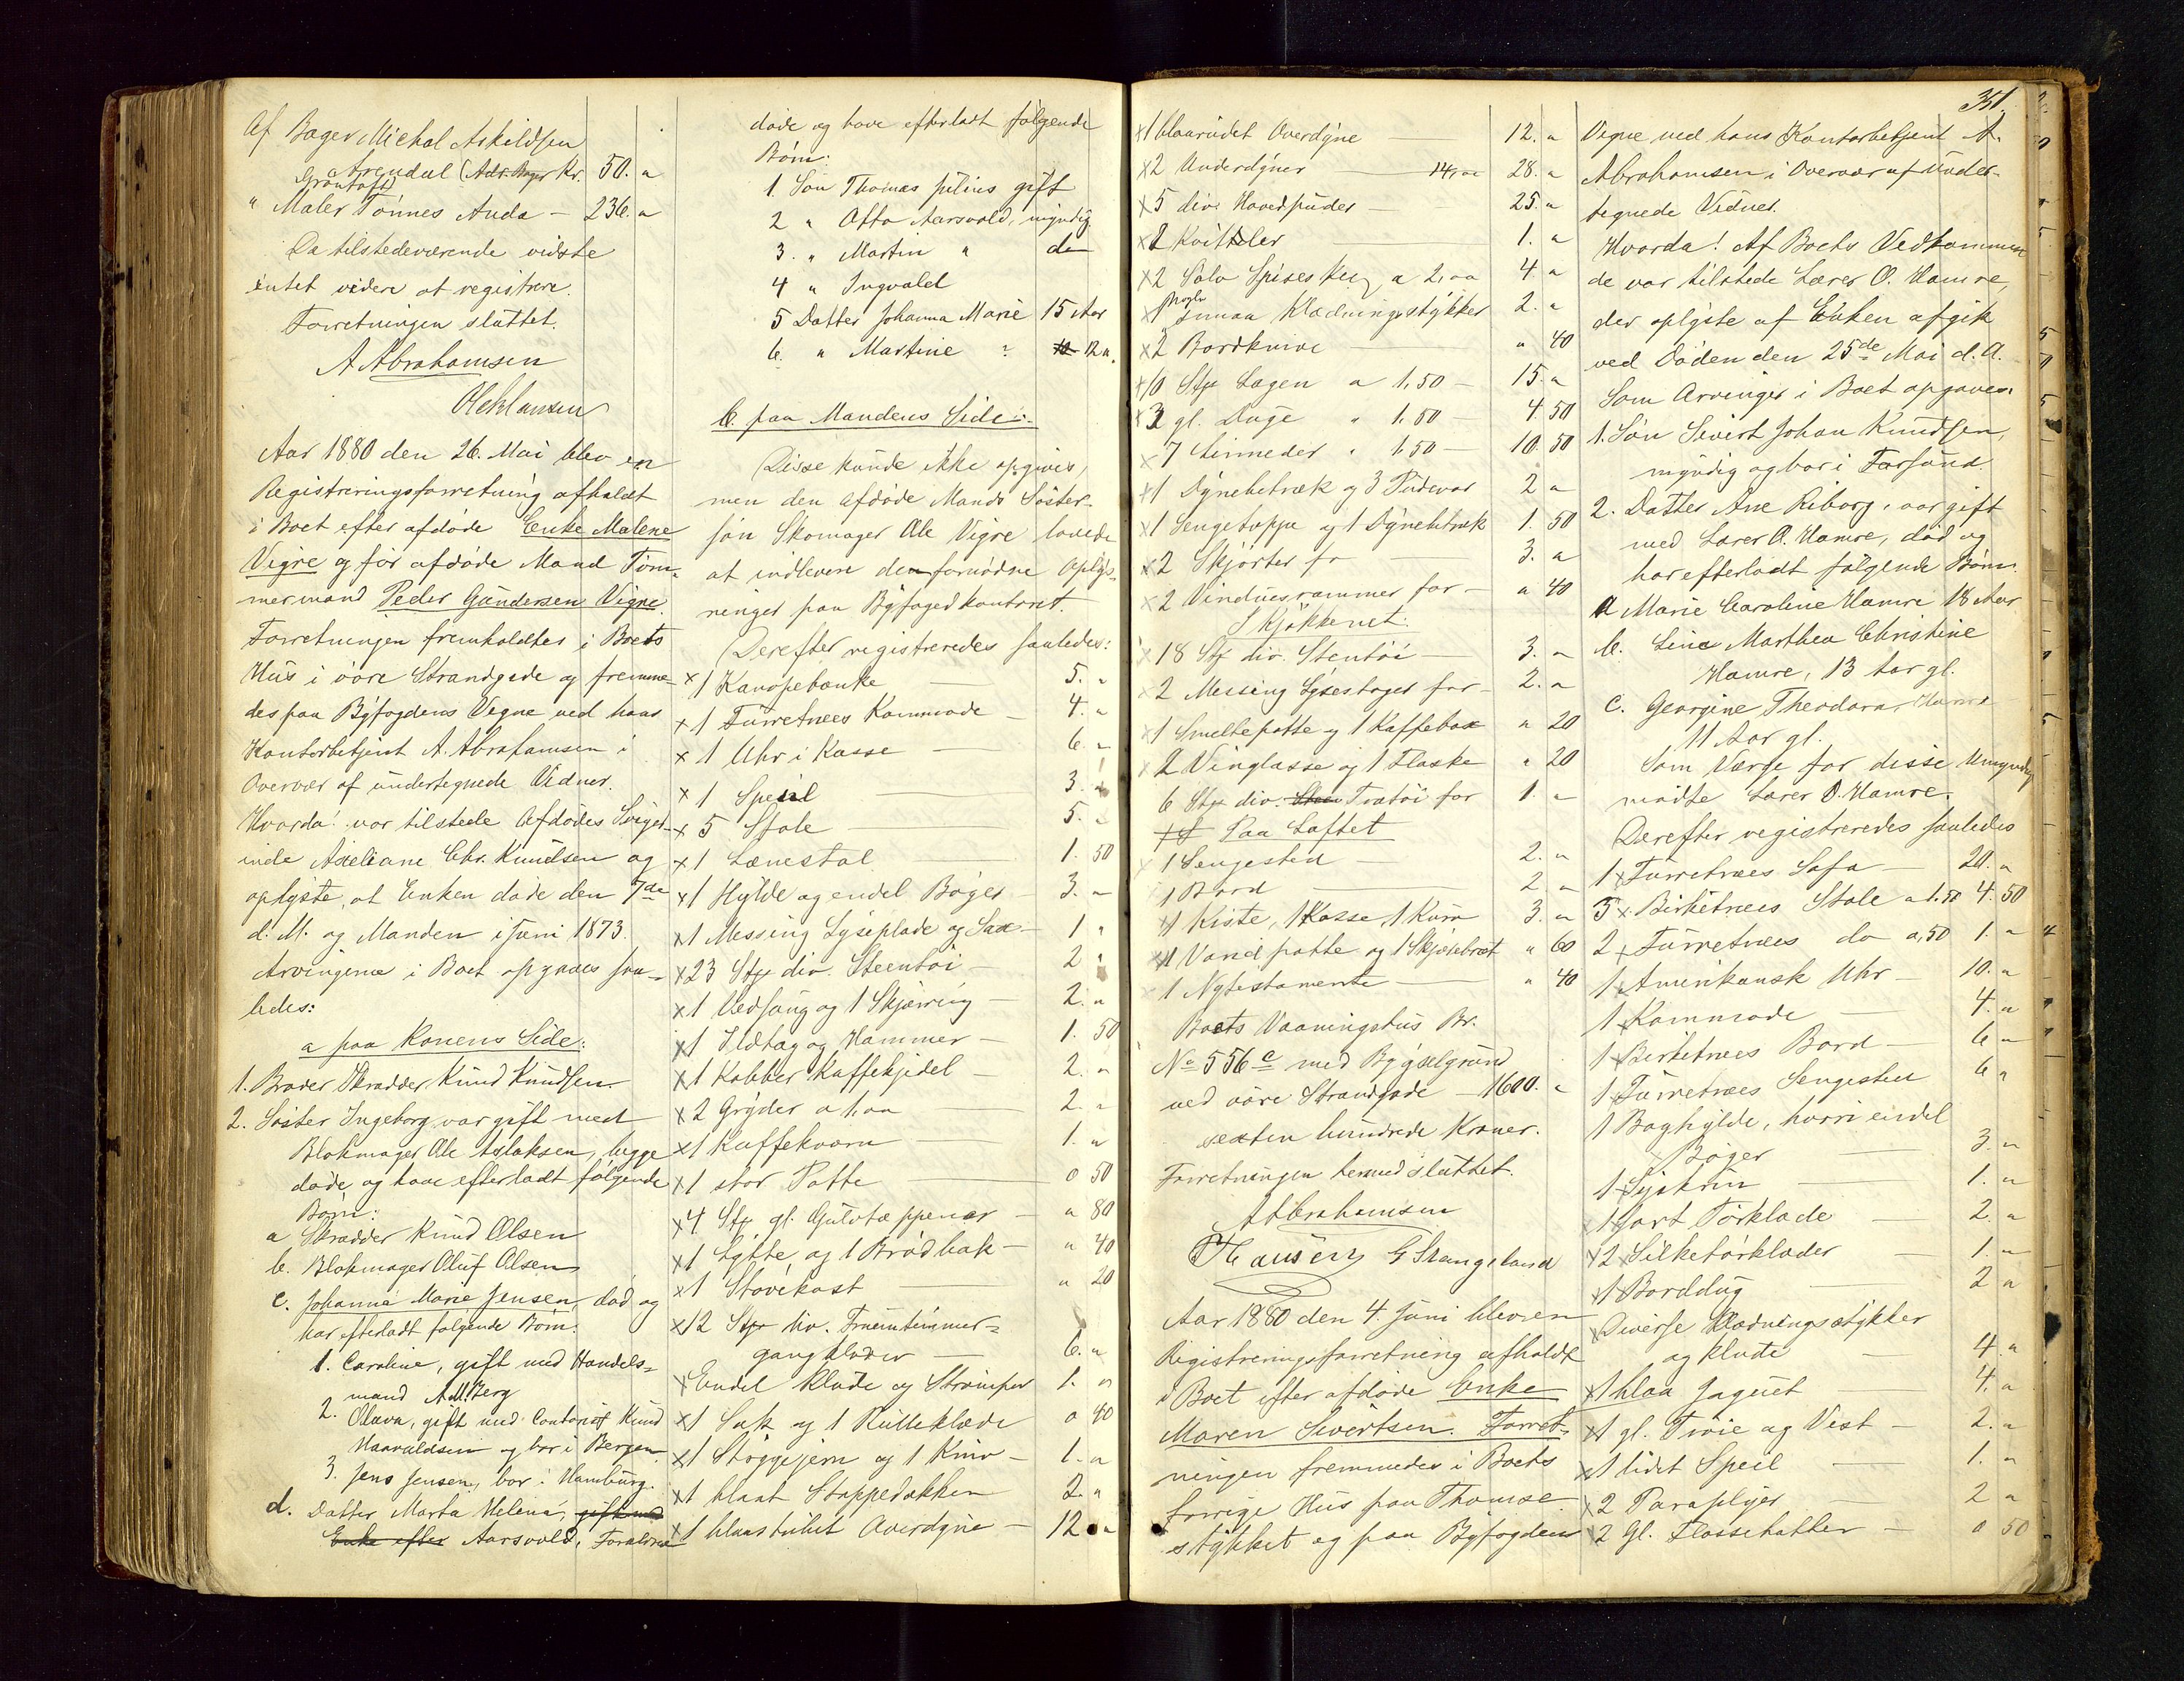 Af Bager Michal Askildsen
Grøntoft
Arendal (Adr. Bager Kr. 50. "
" Maler Tönnes Auda - 236. "
Da tilstedeværende vidste
intet videre at registrere.
Forretningen sluttet.
A Abrahamsen
Ole Hansen
Aar 1880 den 26. Mai blev en
Registreringsforretning afholdt
i Boet efter afdøde Enke Malene
Vigre og før afdøde Mand Töm-
mermand Peder Gundersen Vigre.
Forretningen fremholdtes i Boets
Hus i övre Strandgade og fremme-
des paa Byfogdens Vegne ved hans
Kontorbetjent A. Abrahamsen i
Overvær af undertegnede Vidner.
Hvorda! var tilstede Afdødes Sviger-
inde Axeliane Chr. Knudsen og
oplyste, at Enken døde den 7de
d. M. og Manden i Juni 1873.
Arvingerne i Boet opgaves saa-
ledes:
a paa Konens Side:
1. Broder Skrædder Knud Knudsen.
2. Söster Ingeborg var gift med
Blokmager Ole Aslaksen, begge
døde og have efterladt følgende
Börn:
a Skrædder Knud Olsen
b. Blokmager Oluf Olsen
c. Johanne Marie Jensen, død og
har efterladt følgende Börn:
1. Caroline, gift med Handels-
mand A. M. Berg
2. Olava, gift med Contorist Knud
Haavaldsen og bor i Bergen.
3. Jens Jensen, bor i Hamburg.
d. Datter Marta Helena, gift med
Enke efter Aarsvold, Forældrene
døde og have efterladt følgende
Börn:
1. Sön Thomas Julius gift
2 " Otto Aarsvold, myndig
3. " Martin " do
4 " Ingvald
5 Datter Johanna Marie 15 Aar
6. " Martine " 12 ".
b. paa Mandens Side:
Disse kunde ikke opgives,
men den afdøde Mands Söster-
søn Skomager Ole Vigre lovede
at indlevere den fornødne Oplys-
ninger paa Byfogedkontoret.
Derefter registreredes saaledes:
x 1 Kanapebænke 5. "
x 1 Furretrees Kommode - 4. "
x 1 Uhr i Kasse 6. "
x 1 Speil 3. "
x 5 Stole 5. "
x 1 Lænestol 1. 50
x 1 Hylde og endel Böger 3. "
x 1 Messing Lyseplade og Sax - 1 "
x 23 Stk div. Steentöi - 2 "
x 1 Vedsaug og 1 Skjæring - 2. "
x 1 Ildtag og Hammer - 1. 50
x 1 Kobber Kaffekjedel - 2. "
x 2 Gryder a 1,00 2. "
x 1 Kaffekværn 1. "
x 1 stor Potte 0 50
x 4 Stk gl. Gulvtæppener - " 80
x 1 Lygte og 1 Brödbak - " 40
x 1 Stövekost " 20
x 12 Stk div. Fruentimmer-
gangklæder 6. "
x Endel Klude og Strömper 1. "
x 1 Sæk og 1 Rulleklæde 0 40
x 1 Strygejern og 1 Kniv - 1. "
x 1 blaat Stoppedækken 2. "
x 1 blaastribet Overdyne - 12. "
351.
x 1 blaarudet Overdyne 12. "
x 2 Underdyner 14,00 28. "
x 5 div. Hovedpuder 25. "
x 2 Kvittler 1. "
x 2 Sölv Spiseskeer a 2,00 4. "
x 1 smaa Klædningsstykker 2. "
x 2 Bordknive " 40
x 10 Stk Lagen a 1,50 - 15. "
x 3 gl. Duge " 1,50 - 4. 50
x 7 Linneder " 1,50 - 10. 50
x 1 Dynebetræk og 3 Pudevar 2 "
x 1 Sengetæppe og 1 Dynebetræk 1. 50
x 2 Skjörter for 3. "
x 2 Vinduesrammer for - " 40
I Kjökkenet:
x 18 Stk div. Stentöi 3. "
x 2 Messing Lysestager for - 2. "
x 1 Smeltepotte og 1 Kaffebox " 20
x 2 Vinglasse og 1 Flaske " 20
6 Stk div. Trætöi for 1. "
Paa Loftet
x 1 Sengested 2. "
1 Bord 2 "
x 1 Kiste, 1 Kasse, 1 Kurv 3. "
x 1 Vandpotte og 1 Skjærebræt " 60
x 1 Nytestamente " 40
Boets Vaaningshus Br.
No 556 c med Bygselgrund
ved övre Strandgade - 1600. "
sexten hundrede Kroner.
Forretningen hermed sluttet.
A Abrahamsen
Th Hausen G Stangeland
Aar 1880 den 4. Juni blev en
Registreringsforretning afholdt
i Boet efter afdøde Enke
Maren Sivertsen. Forret-
ningen fremmedes i Boets
forrige Hus paa Thomse-
stykket og paa Byfogdens
Vegne ved hans Kontorbetjent A.
Abrahamsen i Overvær af under-
tegnede Vidner.
Hvorda! Af Boets Vedkommen
de var tilstede Lærer O. Hamre,
der oplyste at Enken afgik
ved Döden den 25de Mai d. A.
Som Arvinger i Boet opgaves:
1. Sön Sivert Johan Knudsen,
myndig og bor i Farsund.
2. Datter Ane Riborg, var gift
med Lærer O. Hamre, död og
har efterladt følgende Börn:
a Marie Caroline Hamre 18 Aar
b. Line Marthea Christine
Hamre, 13 Aar gl.
c. Georgine Theodora Hamre
11 Aar gl.
Som Værge for disse Umyndige
mödte Lærer O. Hamre.
Derefter registreredes saaledes
1 x Furretrees Sofa 20. "
3 x Birketrees Stole a 1.50 4. 50
2 x Furretrees do a ,50 1. "
1 x Amerikansk Uhr 10. "
1 x Kommode 4. "
1 x Birketrees Bord 6 "
1 x Furretrees Sengested 6 "
1 Boghylde, hvori endel
Böger 3. "
1 x Syskrin 1. "
x 1 sort Törklæde 2. "
x 2 Silketörklæder 1. "
x 1 Borddug 2 "
x Diverse Klædningsstykker
og Klude 4. "
x 1 blaa Jaquet 4. "
x 1 gl. Tröie og Vest 2. "
x 1 lidet Speil 1. "
x 2 Paraplyer 2 "
x 2 Gl. Flossehatter 0 50